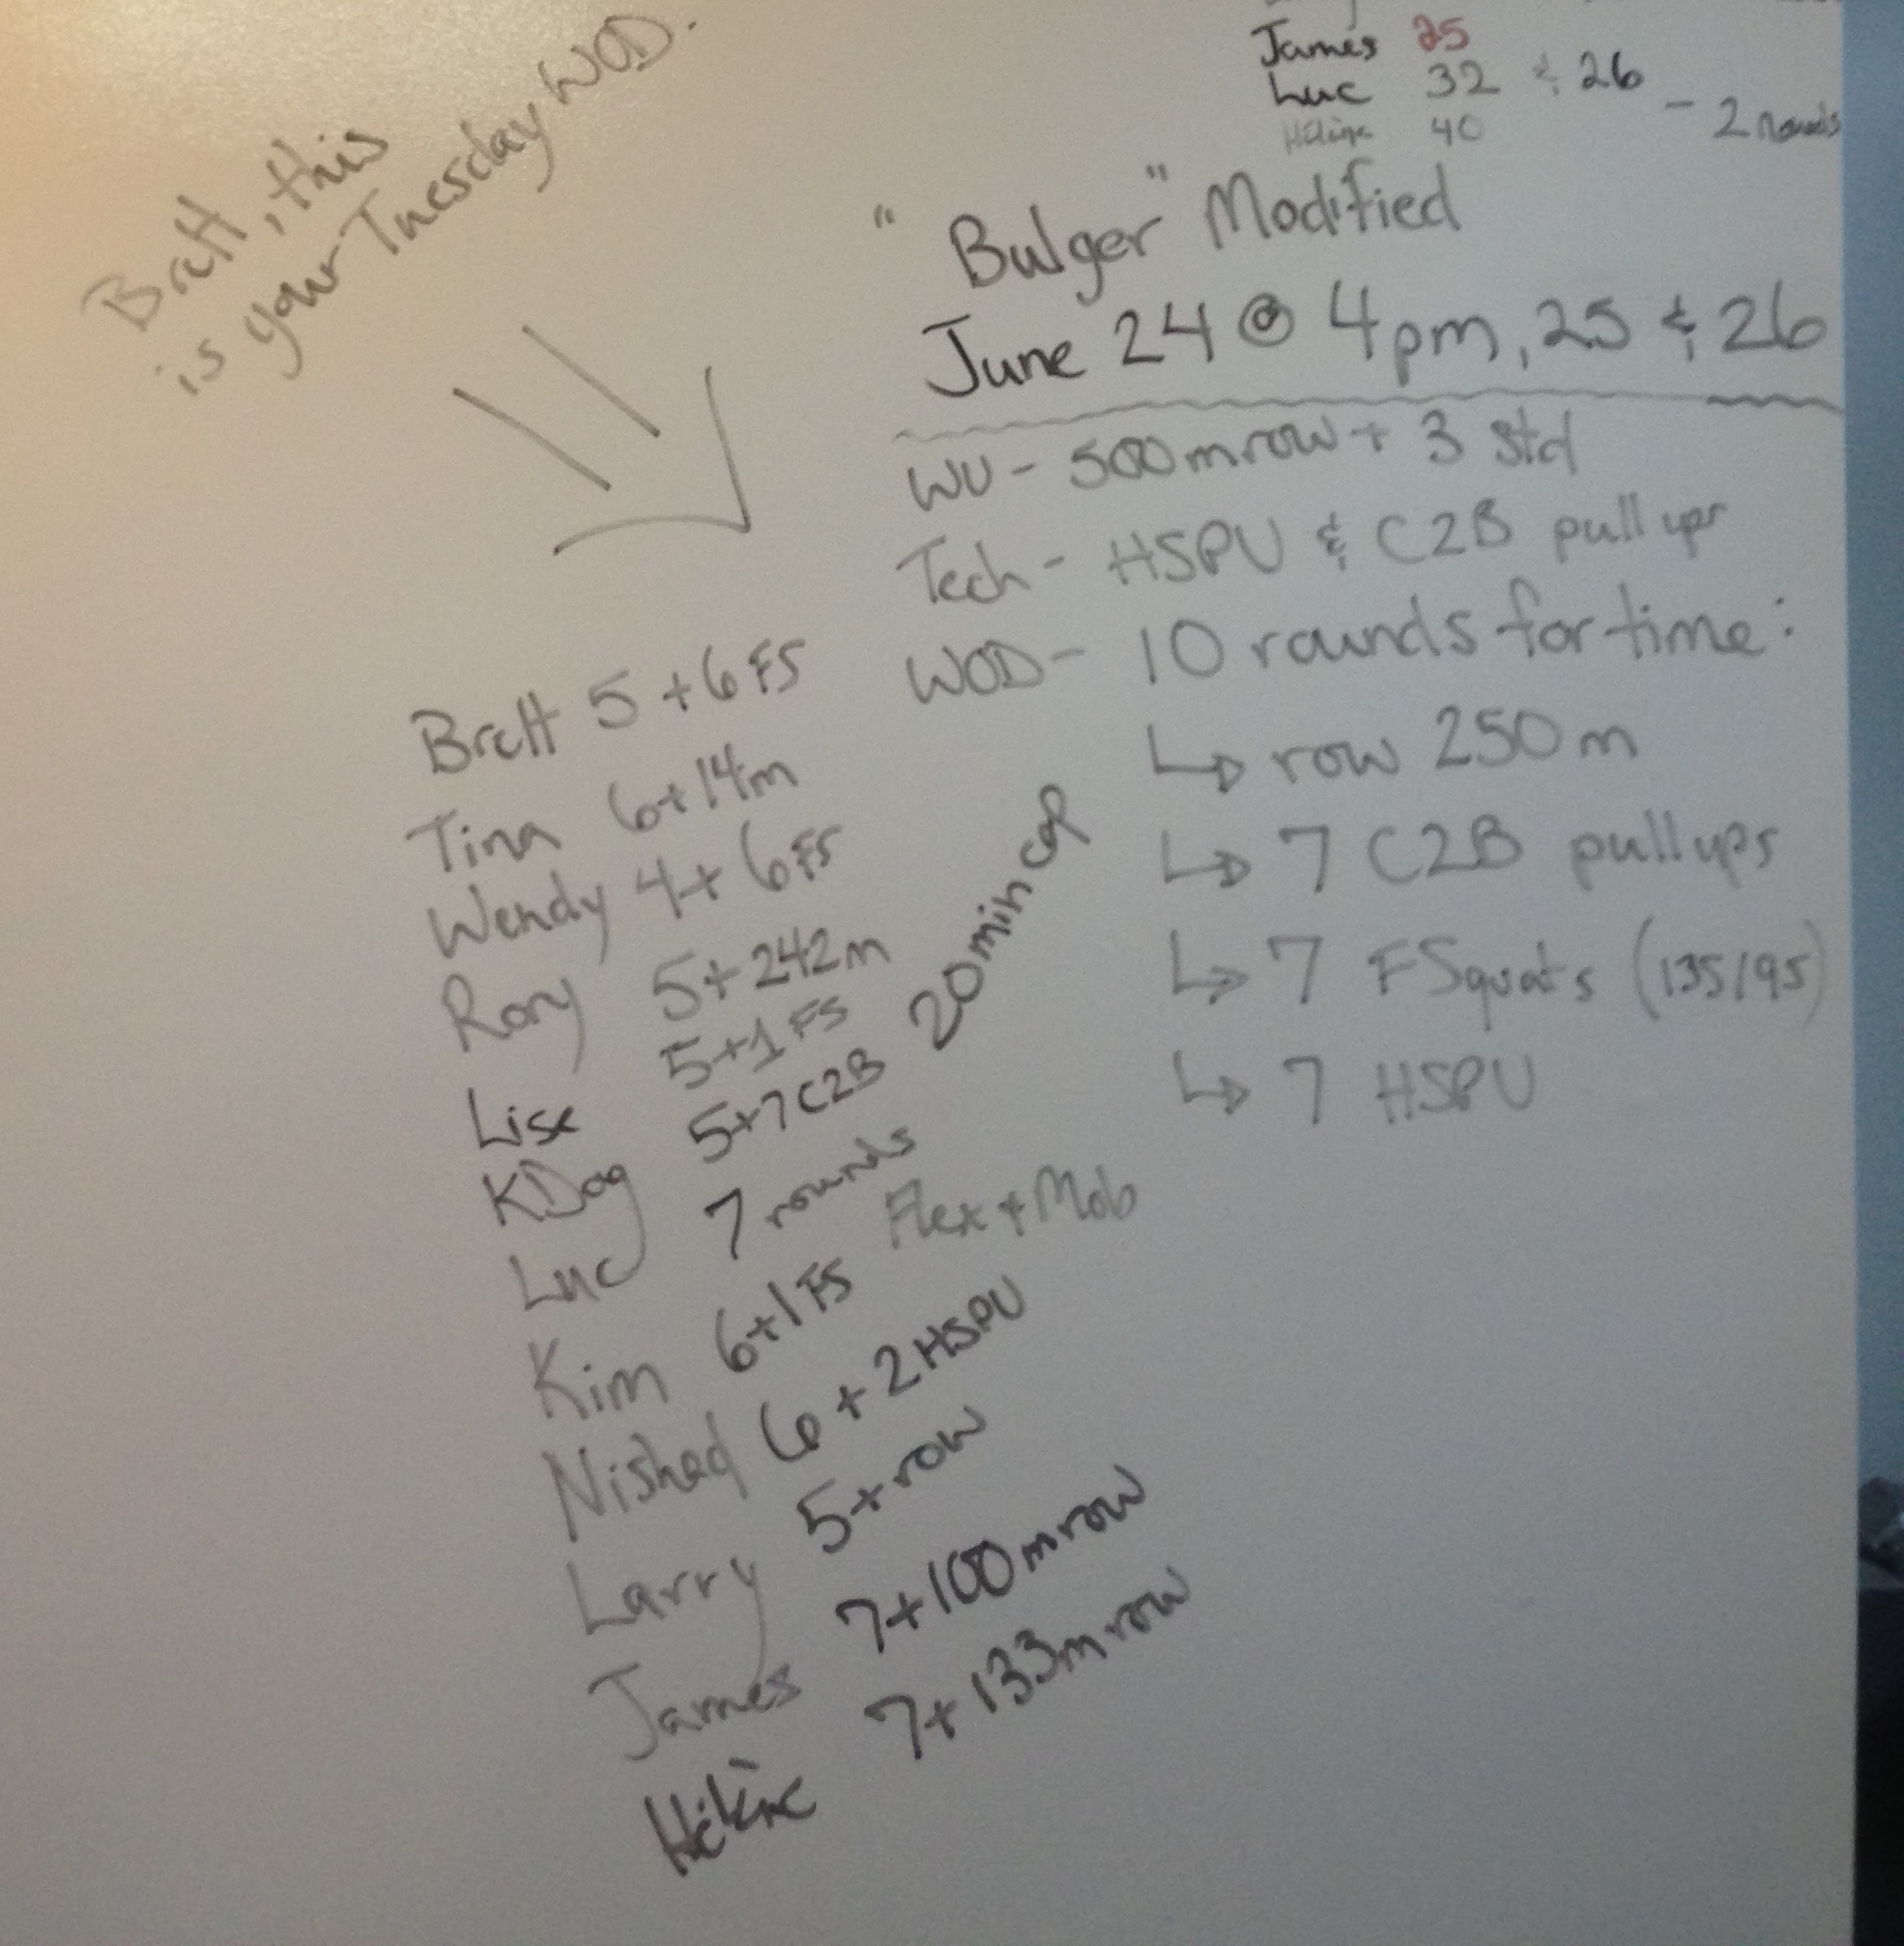 James 25
Luc 32 & 26
Hélène 40 - 2 rounds
Brett, this
is your Tuesday WOD.
"Bulger" Modified
June 24 @ 4pm, 25 & 26
WU - 500m row + 3 Std
Tech - HSPU & C2B pull ups
WOD - 10 rounds for time:
↳ row 250m
↳ 7 C2B pull ups
↳ 7 FSquats (135/95)
↳ 7 HSPU
20 min cap
Brett 5 + 6 FS
Tina 6 + 14m
Wendy 4 + 6 FS
Rory 5 + 242m
Lise 5 + 1 FS
KDog 5 + 7 C2B
Luc 7 rounds
Flex + Mob
Kim 6 + 1 FS
Nishad 6 + 2 HSPU
Larry 5 + row
James 7 + 100m row
Hélène 7 + 133m row